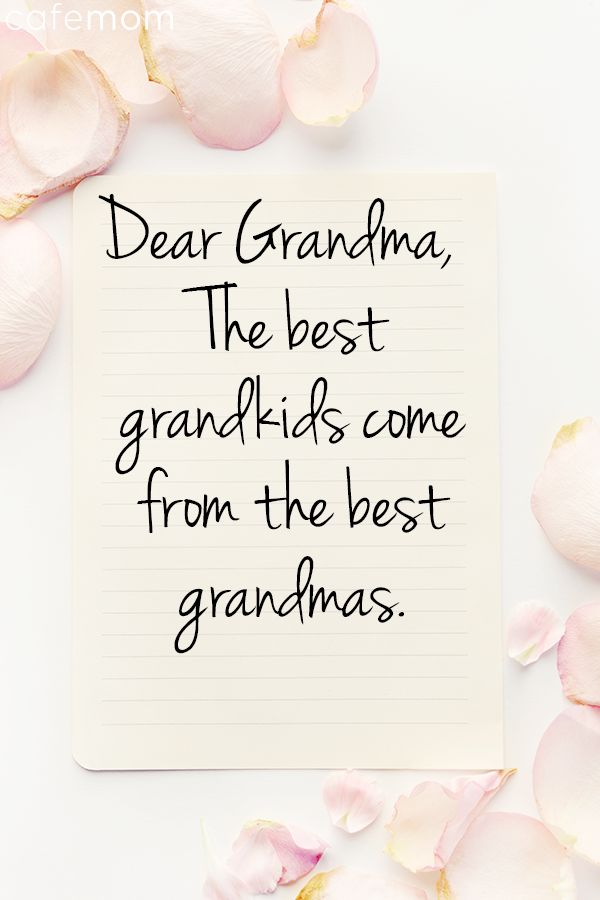 cafemom
Dear Grandma,
The best
grandkids come
from the best
grandmas.